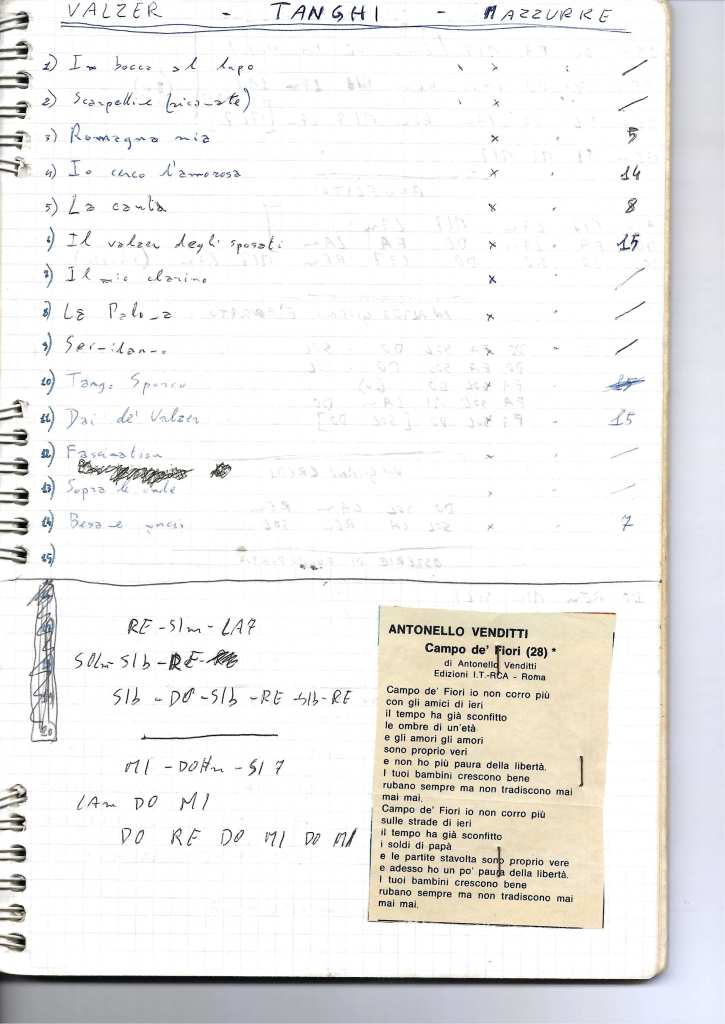 VALZER - TANGHI - MAZZURKE
1) In bocca al lupo x /
2) Scarpettine (ricamate) x /
3) Romagna mia x 5
4) Io cerco l'amorosa x 14
5) La canta x 8
6) Il valzer degli sposati x 15
7) Il mio clarino x /
8) La Paloma x /
9) /
10) Tango
11) Dai dè Valzer x 15
12) Fascination /
13) Sopra le onde /
14) x 7
15)
RE - SIm - LA7
SOLm - SIb - RE -
SIb - DO - SIb - RE - SIb - RE
MI - DO#m - SI7
LAm DO MI
DO RE DO MI DO MI
ANTONELLO VENDITTI
Campo de' Fiori (28) *
di Antonello Venditti
Edizioni I.T.-RCA - Roma
Campo de' Fiori io non corro più
con gli amici di ieri
il tempo ha già sconfitto
le ombre di un'età
e gli amori gli amori
sono proprio veri
e non ho più paura della libertà.
I tuoi bambini crescono bene
rubano sempre ma non tradiscono mai
mai mai.
Campo de' Fiori io non corro più
sulle strade di ieri
il tempo ha già sconfitto
i soldi di papà
e le partite stavolta sono proprio vere
e adesso ho un po' paura della libertà.
I tuoi bambini crescono bene
rubano sempre ma non tradiscono mai
mai mai.